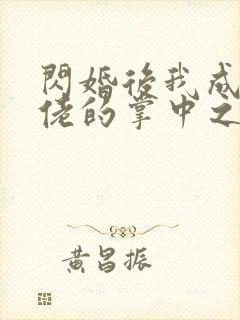 閃婚後我成
佬的掌中之
黃昌振